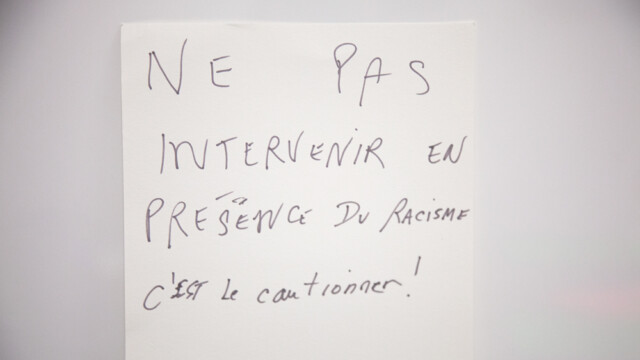 NE PAS
INTERVENIR EN
PRÉSENCE DU RACISME
C'EST LE cautionner!